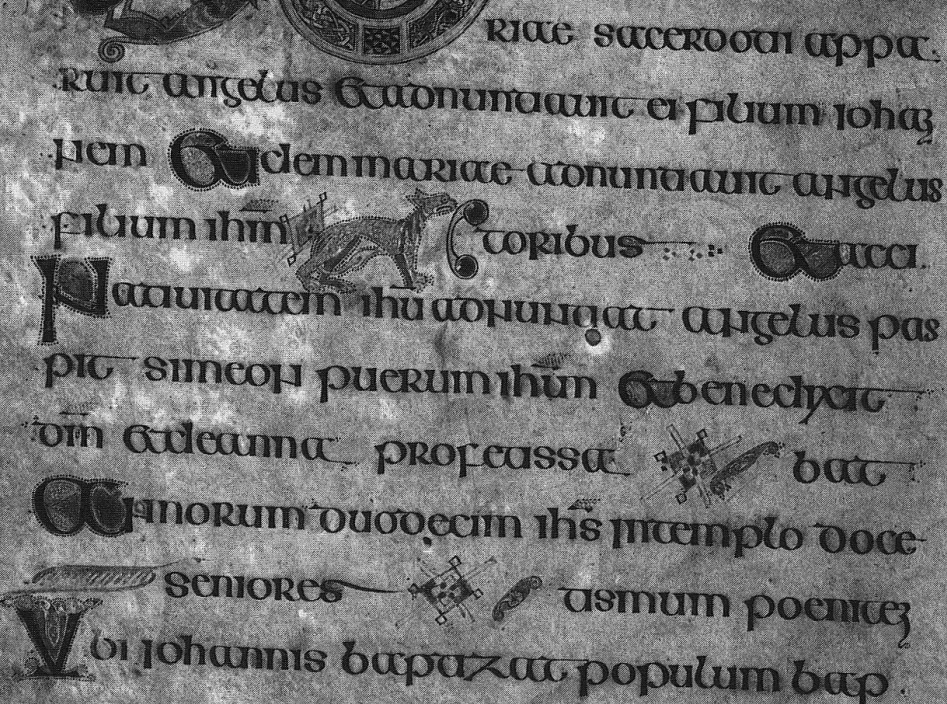 riae sacerdoti appa
ruit angelus & adnuntiauit ei filium iohan
nem &dem mariae adnuntiauit angelus
filium ihm toribus & acci
Natiuitatem ihu adnuntiat angelus pas
pit simeon puerum ihm & benedixit
dm & de anna profetissa bat
Annorum duodecim ihs in templo doce
seniores tismum poeniten
Vbi iohannis baptizat populum bap